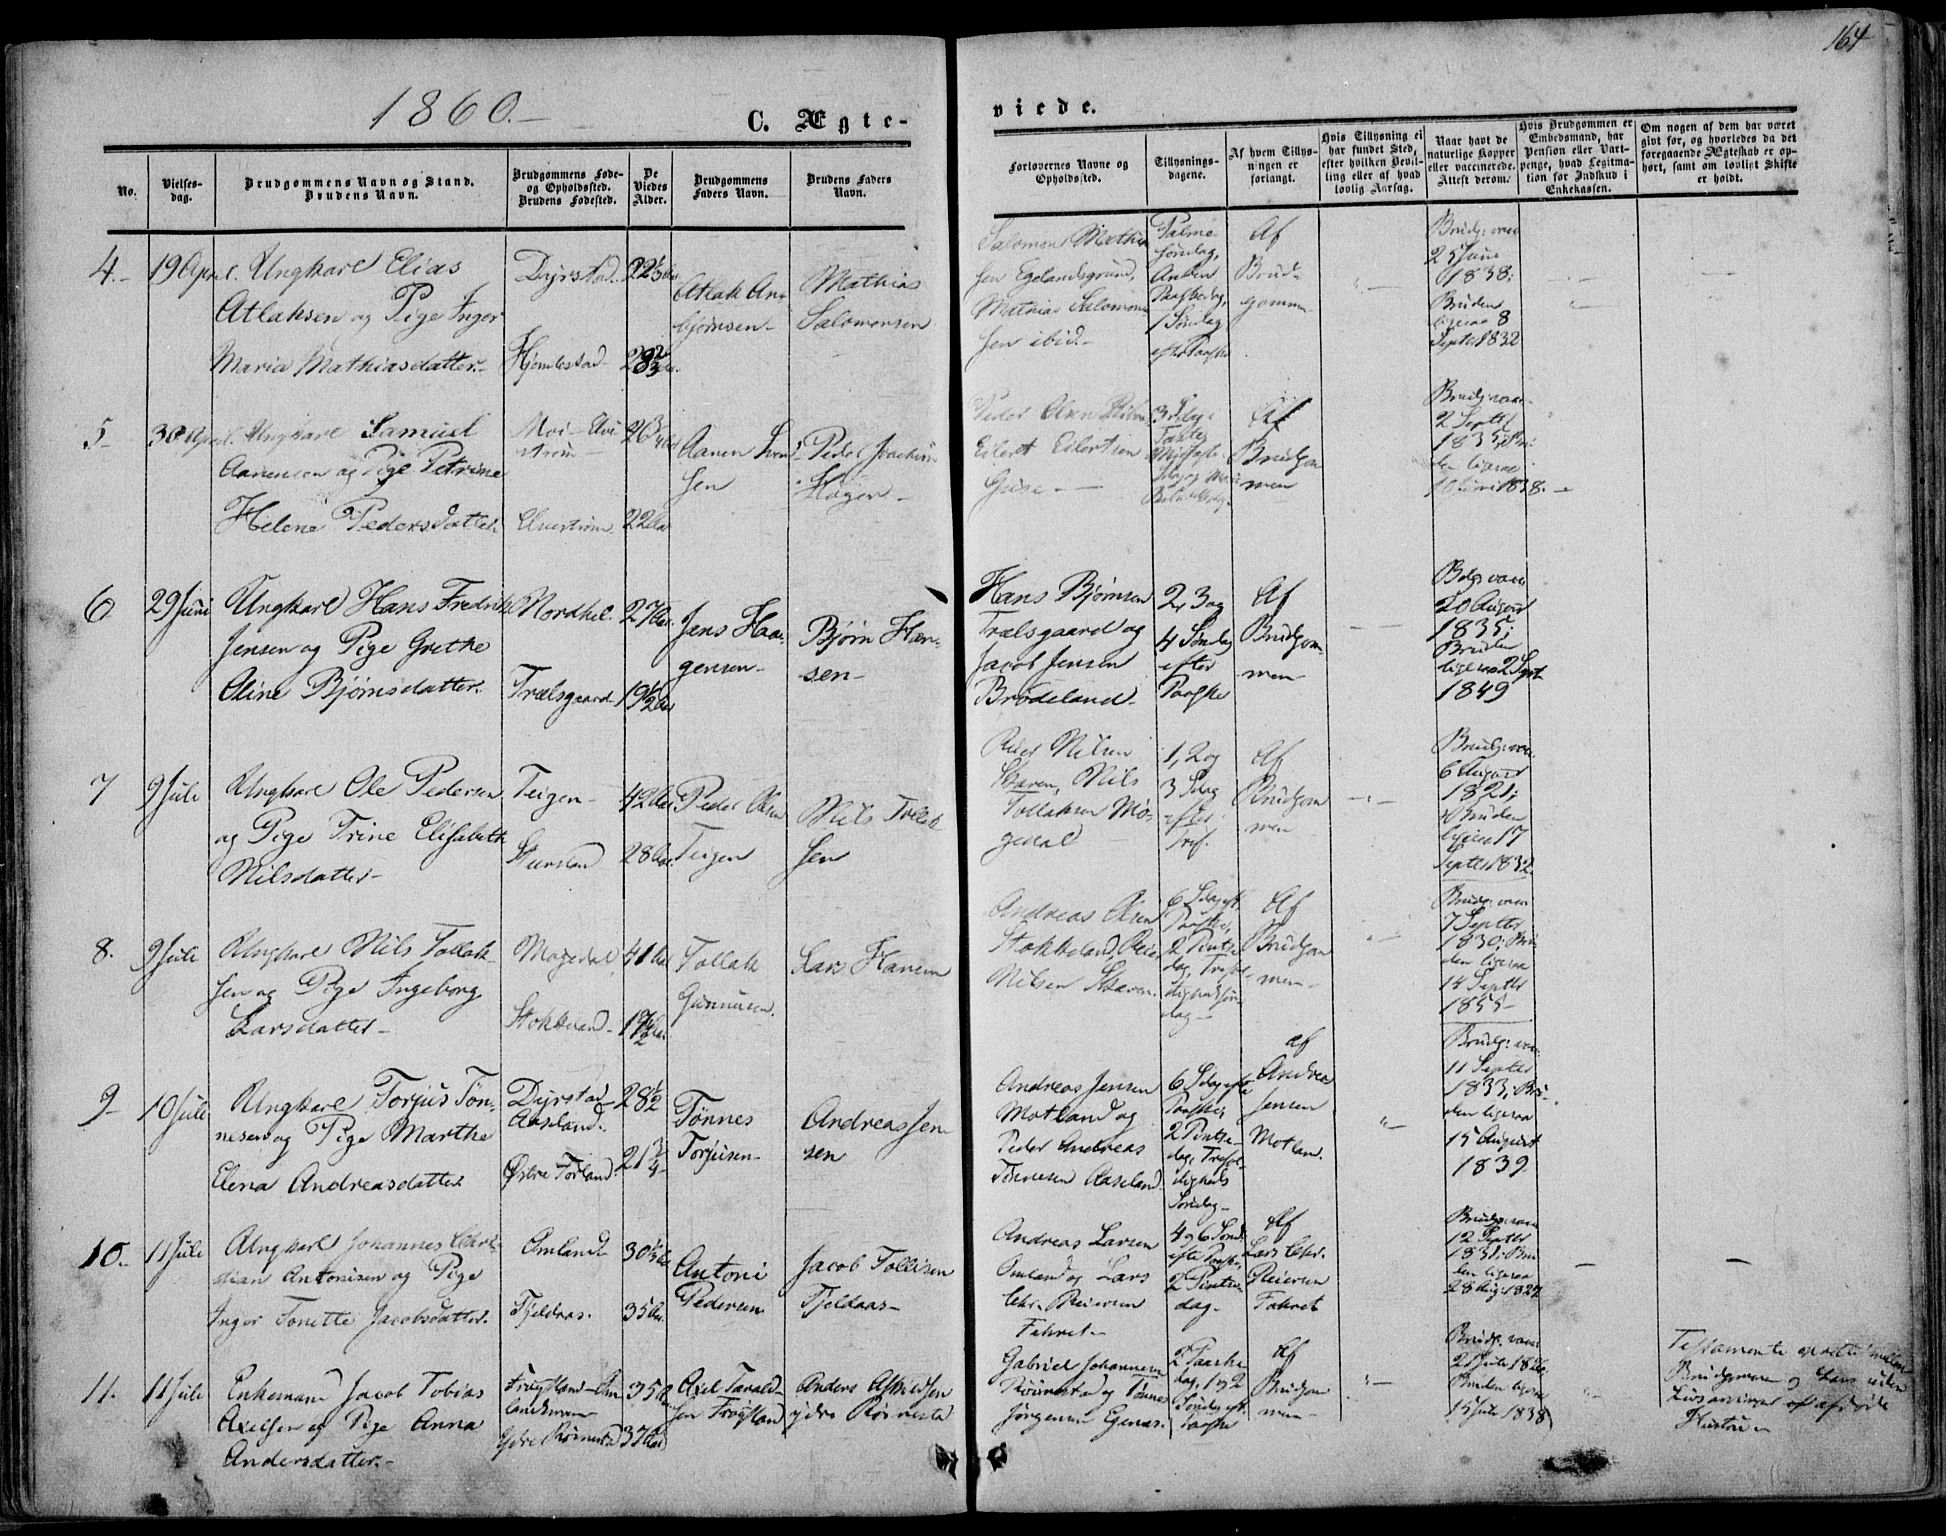 164
1860.-
C. Ægte-
viede.
No.
Vielses-
dag.
Brudgommens Navn og Stand.
Brudens Navn.
Brudgommens Føde-
og Opholdssted.
Brudens Fødested.
De
Viedes
Alder.
Brudgommens
Faders Navn.
Brudens Faders
Navn.
Forlovernes Navne og
Opholdssted.
Tillysnings-
dagene.
Af hvem Tillys-
ningen er
forlangt.
Hvis Tillysning ei
har fundet Sted,
efter hvilken Bevil-
ling eller af hvad
lovlig Aarsag.
Naar havt de
naturlige Kopper
eller vaccinerede.
Attest derom.
Hvis Brudgommen er
Embedsmand, har
Pension eller Vart-
penge, hvad Legitima-
tion for Indskud i
Enkekassen.
Om nogen af dem har været
givt før, og hvorledes da det
foregaaende Ægteskab er op-
hørt, samt om lovligt Skifte
er holdt.
4.-
19 April.
Ungkarl Elias
Atlaksen og Pige Inger
Maria Mathiasdatter.-
Dyrstad.
Hjemlestad-
22 1/3 Aar
28 2/3 Aar.
Atlak An-
bjørnsen-
Mathias
Salomonsen
Salomon Mathia
sen Egelandsgrund,
Mathias Salomon
sen ibid.-
Palme
søndag,
Anden
Paaskedag,
1 Søndag
efter Paaske
Af
Brud-
gomm-
Brudg: vacc
25 Juni
1838;
Bruden
ligesaa 8
Septbr 1832
5-
30 April.
Ungkarl Samuel
Aanensen og Pige Petrine
Helene Pedersdatter
Moi-
Qvistrøm
26 3/4 Aar
22 Aar
Aanen Svend
sen
Peder Joachim
Hagen-
Peder Olsen
Eilert Eilertsen
Guse-
Af
Brudgom
men
Brudg: vacc
2 Septbr
1835; Bru
den ligesaa
10 Juni 1838.-
6
29 Juni
Ungkarl Hans Fredrik
Jensen og Pige Grethe
Oline Bjørnsdatter.
Nordhel.
Trælsgaard
27 Aar.
19 1/2 Aar
Jens Haa-
gensen-
Bjørn Han-
sen-
Hans Bjørnsen
Trælsgaard og
Jacob Jensen
Brødeland-
2, 3 og
4 Søndag
efter
Paaske
Af
Brudgom-
men-
Bdg: vacc
20 August
1835;
Bruden
ligesaa 2 Sept
1849
7
9 Juli
Ungkarl Ole Pedersen
og Pige Trine Elisabeth
Nilsdatter-
Teigen-
42 Aar
28 Aar.
Peder Olsen
Teigen
Nils Tollak
sen
Peder Nilsen
Skaven, Nils
Tollaksen Mø-
gedal
1, 2 og
3 Sdag
efter
Tref.
Af
Brudgom
men-
Brudg: vacc
6 August
1821;
Bruden
ligesaa 17
Septbr 1832.
8.
9 Juli
Ungkarl Nils Tollak-
sen og Pige Ingeborg
Larsdatter-
Møgedal
Stokkeland-
41 Aar
19 1/2 Aar
Tollak
Gunnusen.
Lars Hansen
Andreas Olsen
Stokkeland, Peder
Nilsen Skaven.
6 Sdag eft.
Paaske,
2 Pintse
dag, Trefol-
digheds søn
dag-
Af
Brudgom
men-
Brudg: vacc
7 Septbr
1830; Bru
den ligesaa
14 Septbr
1855-
9-
10 Juli
Ungkarl Torjus Tøn-
nesen og Pige Marthe
Elena Andreasdatter
Dyrstad
Aaseland.
Østre Førland.
28 1/2
21 3/4
Tønnes
Torjusen-
Andreas Jen
sen
Andreas Jensen
Motland og
Peder Andreas
Tønnesen Aaseland.
6 Sdag efter
Paaske,
2 Pintse-
dag, Trefol-
digheds
Søndag-
af
Andreas
Jensen
Motland.
Brudg: vacc.
11 Septbr
1833, Bru-
den ligesaa
15 August
1839
10.-
11 Juli
Ungkarl Johannes Chri-
stian Antonisen og Pige
Inger Tonette Jacobsdatter.
Omland-
Fjeldaas.
30 1/3 Aar
35 Aar.
Antoni
Pedersen
Jacob Tollisen
Fjeldaas-
Andreas Larsen
Omland og Lars
Chr. Reiersen
Fahret-
4 og 6 Sønd
efter Paaske,
2 Pintse
dag-
Af
Lars Chr.
Reiersen
Fahret
Brudg: vacc
12 Septbr
1831; Bru
den ligesaa
28 Aug: 1827
11.
11 Juli
Enkemand Jacob Tobias
Axelsen og Pige Anna
Andersdatter.-
Frøysland
Ydre Rørnestad
35 Aar
37 Aar
Axel Tarald-
sen Frøysland
Anders
ydre Rørnesta
Gabriel Johannesen
Rørnestad og Tønnes
Jørgensen Egenæs.
2 Paaske
dag, 1 og 2
Søndag eft.
Paaske
Af
Brudgom
men-
Brudg: vacc
21 Juli 1826,
Bruden ligesaa
15 Juli 1838
Testamente oprettet mellem
Brudgommen og hans uden
Livsarvinger afdøde
Hustru-